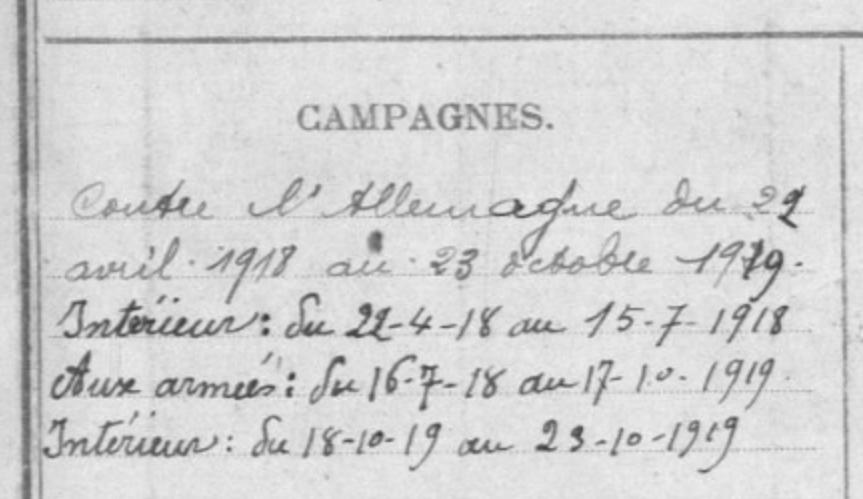 CAMPAGNES.
Contre l'Allemagne du 22
avril 1918 au 23 octobre 1919.
Intérieur : du 22-4-18 au 15-7-1918
Aux armées : du 16-7-18 au 17-10-1919.
Intérieur : du 18-10-19 au 23-10-1919